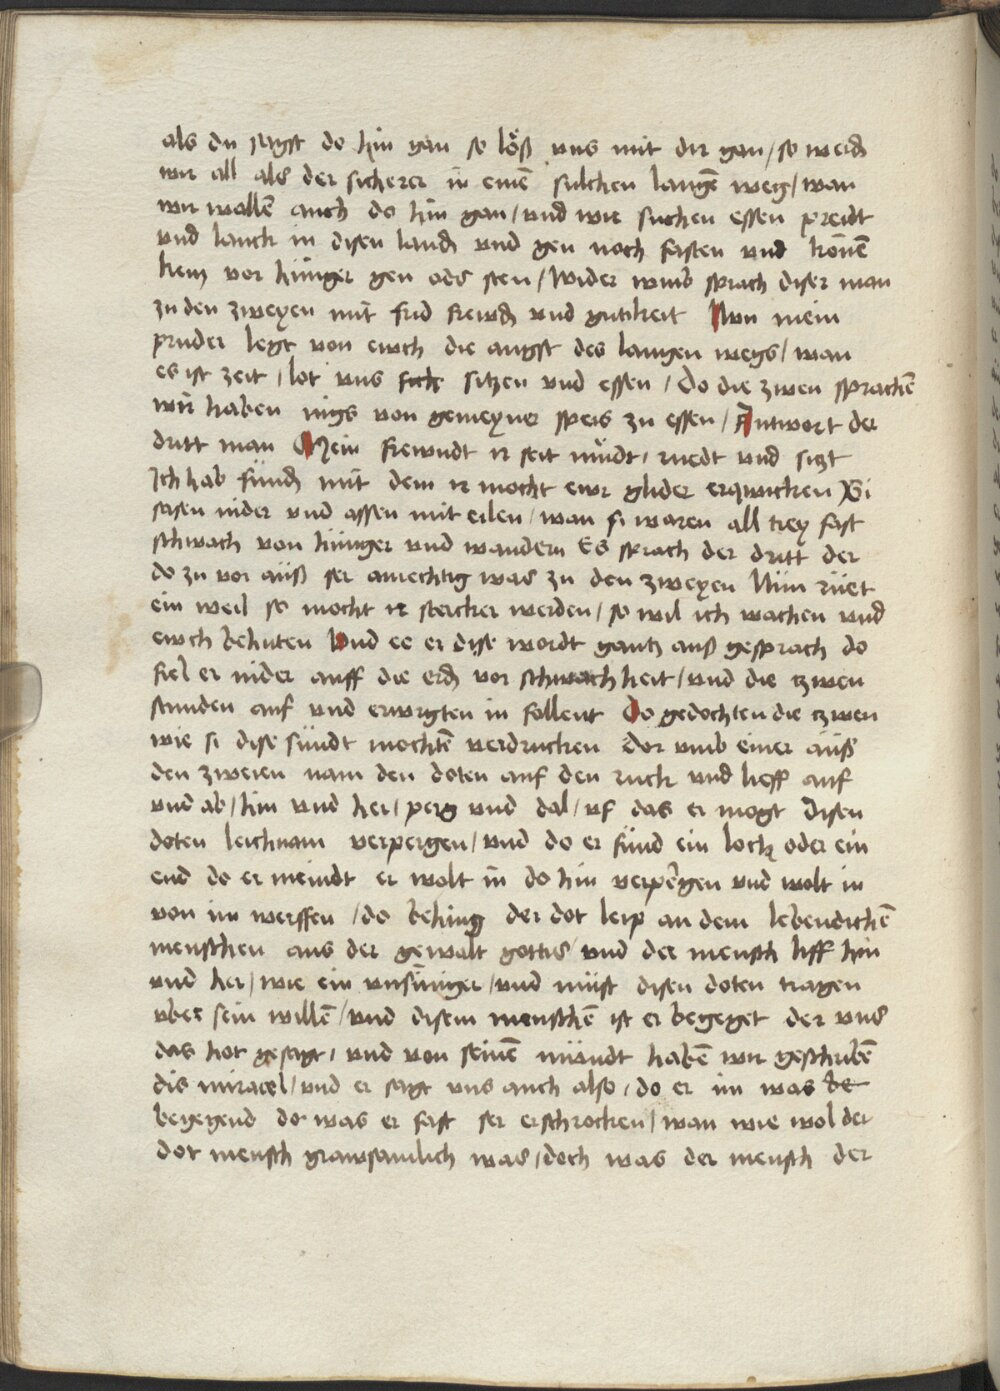 als du sagst do hin gan so löß vns mit dir gan / so werdn
wir all als der sicherer in einē sulchen langē weg / wan
wir wollē auch do hin gan / vnd wir suchen essen preidt
vnd lauch in disen landn vnd gen noch fasten vnd kōnē
kem vor hunger gen ods sten / Wider vmb sprach diser man
zu den zweyen mit frid frewdn vnd gutikeit Nvn mein
pruder legt von ewch die angst des langen wegs / wan
es ist zeit / lot vns sitzen vnd essen / Do die zwen sprachē
wir haben nigs von gemeyner speis zu essen / Antwort der
dritt man Mein frewndt ir seit mudt / ruedt vnd sitzt
Ich hab fundn mit dem ir mocht ewr glider erqwicken Si
sasen nider vnd assen mit eilen / wan si waren all trey fast
schwach von hunger vnd wandern Es sprach der dritt der
do zu vor auß ser amechtig was zu den zweyen Nun ruet
ein weil so mocht ir stercker werden / so wil ich wachen vnd
ewch behuten Vnd ee er dise wordt gantz auß gesprach do
fiel er nider auff die erdn vor schwachheit / vnd die zwen
stunden auf vnd erwrigten in follent Do gedochten die zwen
wie si dise sundt mochtē verdrucken Dor vmb einer auß
den zweien nam den doten auf den ruck vnd lieff auf
vnd ab / hin vnd her / perg vnd dal / vf das er mogt disen
doten leichnam verpergen / vnd do er fund ein loch oder ein
end do er meindt er wolt in do hin verpergen vnd wolt in
von im werffen / do behing der dot leip an dem lebendichē
menschen aus der gewalt gottis vnd der mensch liff hin
vnd her / wie ein vnsiniger / vnd must disen doten tragen
vber sein willē / vnd disem menschē ist er begeget der vns
das hot gesagt / vnd von seinē mundt habē wir geschribē
dis miracel / vnd er sagt vns auch also / do er im was be
begegend do was er fast ser erschrocken / wan wie wol der
dot mensch grawsamlich was / doch was der mensch der